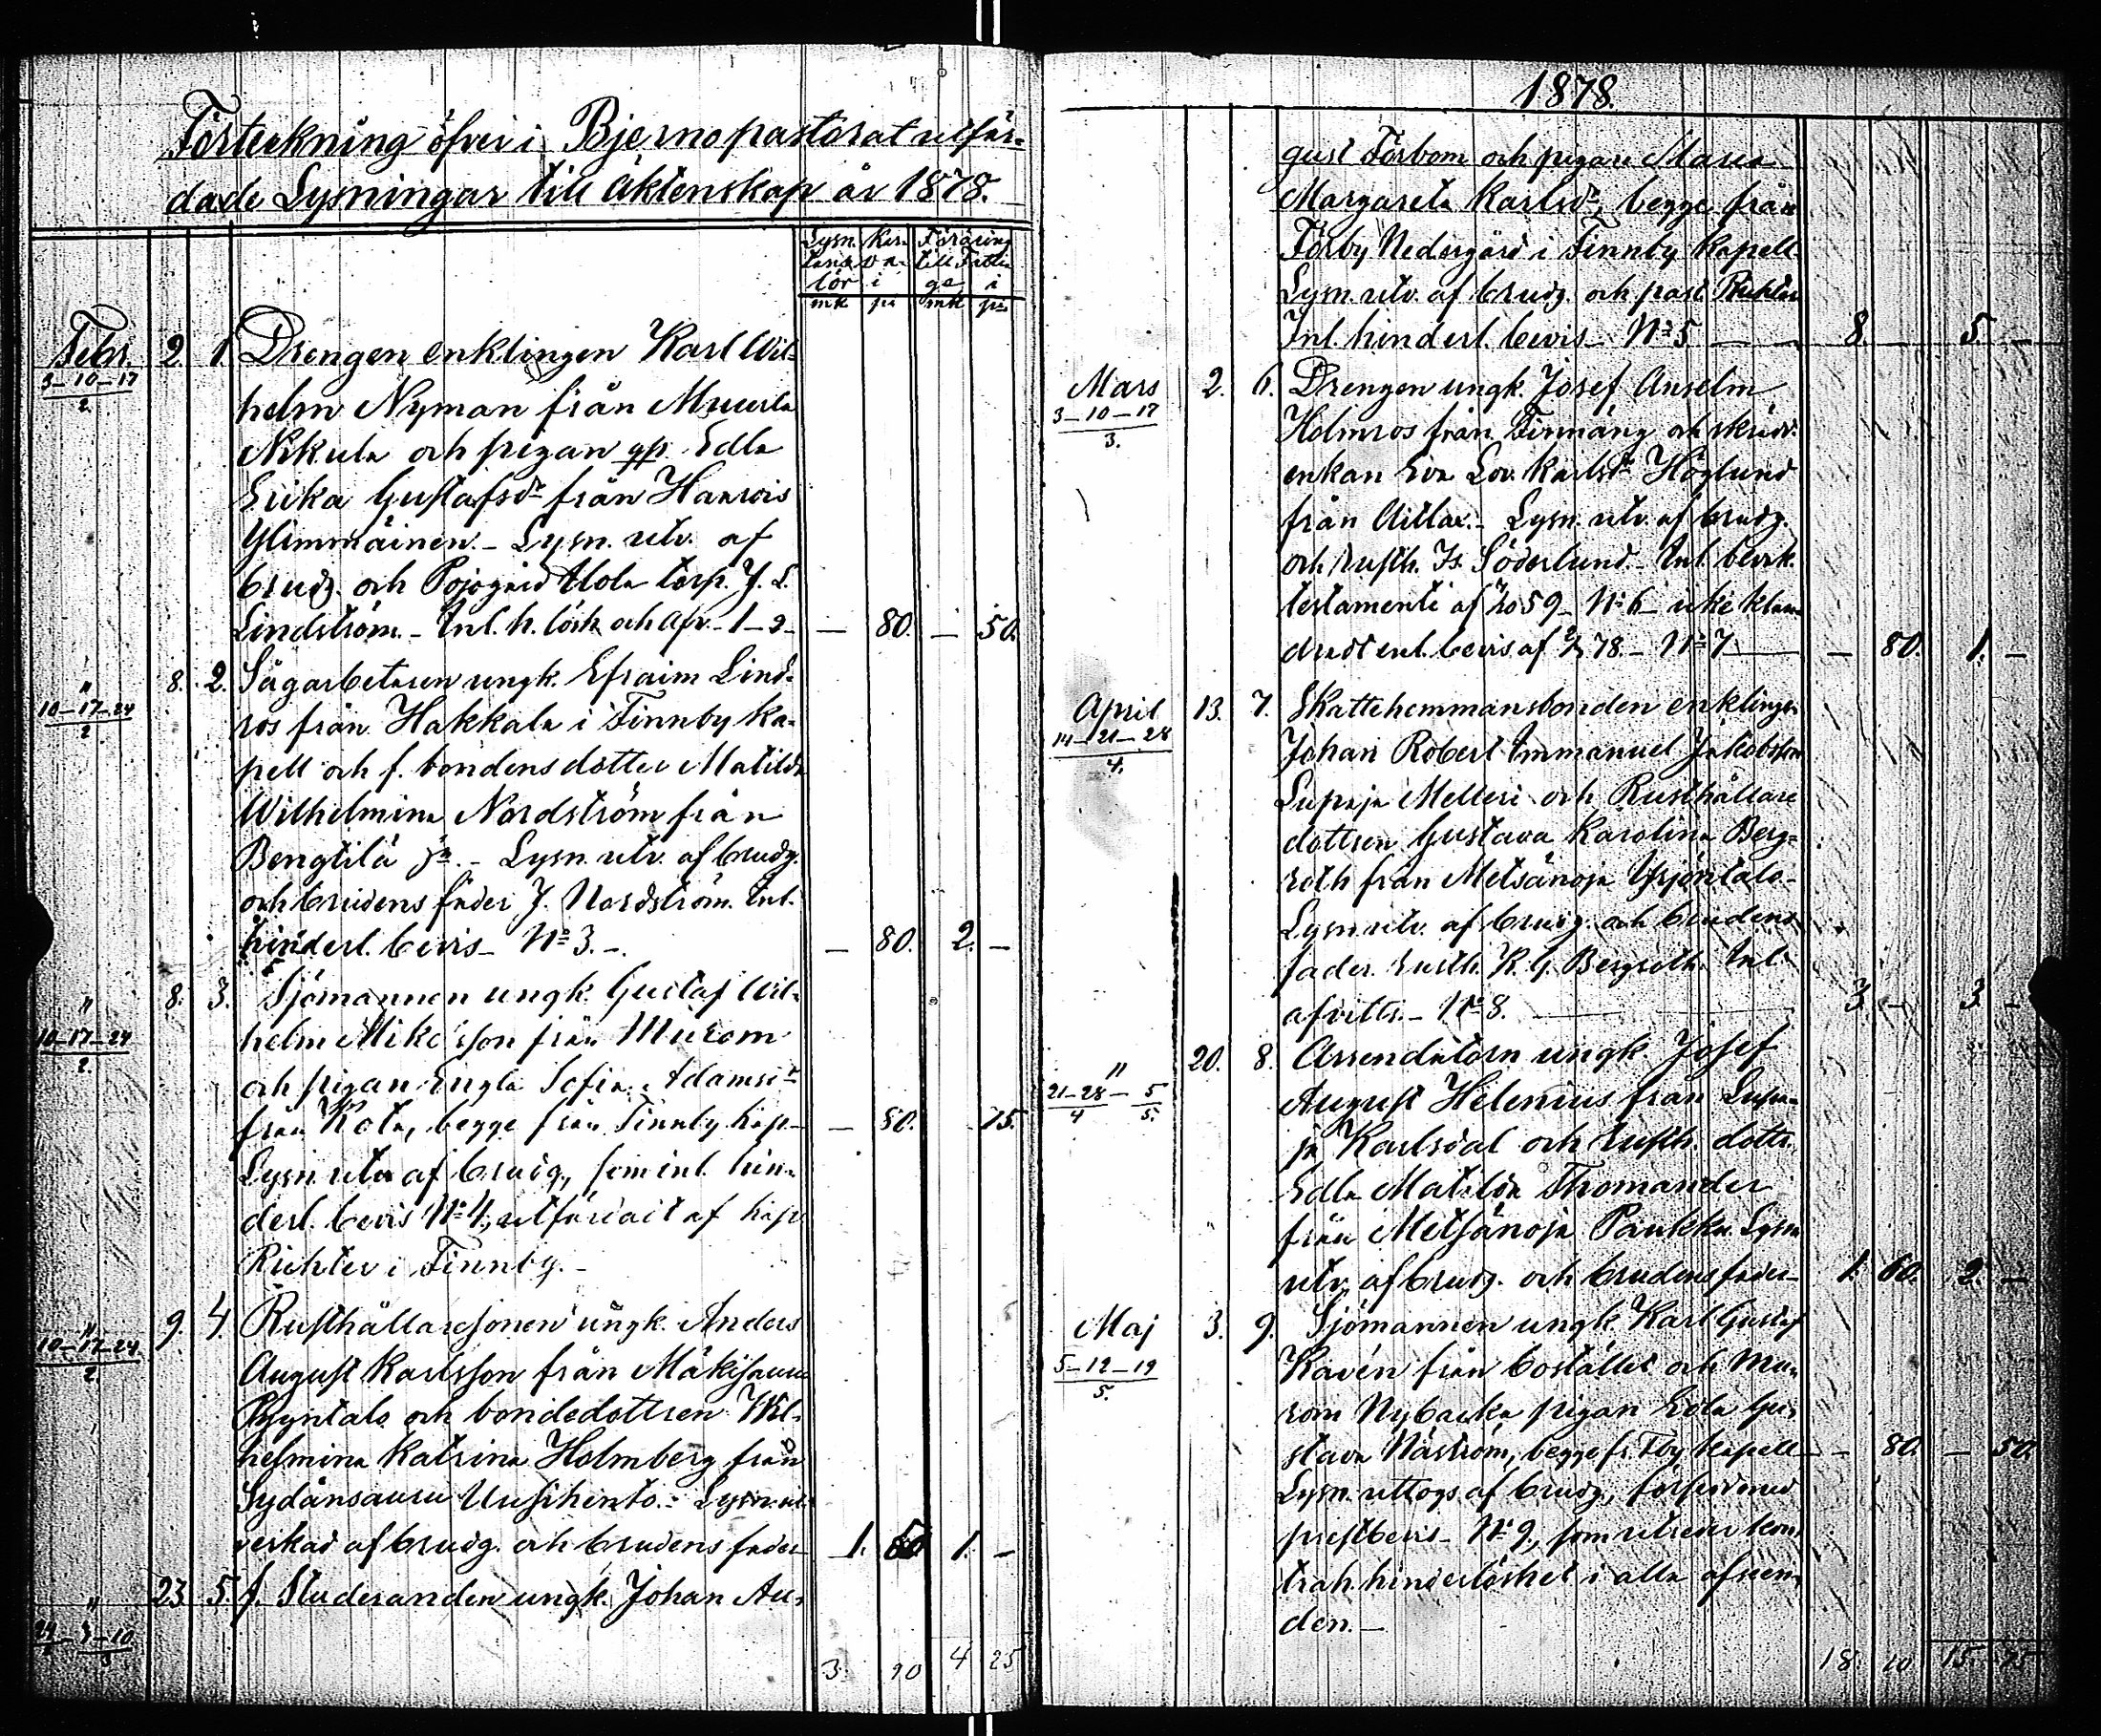 Förteckning öfver i Bjerno pastorat utfär-
dade Lysningar till äktenskap år 1878.
Lysn. Föräring
till Fattiga
mk pi mk pi
Febr. 2. 1. Drengen enklingen Karl Wil-
3-10-17
2
helm Nyman från Muurla
Nikula och pigan qp. Edla
Erika Gustafsdr från Haarois
Ylimmäinen. – Lysn. utv. af
brudg. och Pojogård Uola torp. J. L.
Lindström. – Inl. h. lösh. och afv. – 1–2 – — 80. — 50.
" 8. 2. Sågarbetaren ungk. Efraim Lind-
10-17-24
2
ros från Hakkala i Finnby ka-
pell och f. bondens dotter Matilda
Wilhelmina Nordström från
Bengtilä – Lysn. utv. af brudg.
och brudens fader J. Nordström. Inl.
hinderl. bevis – No 3. – — 80. 2. —
" 8. 3. Sjömannen ungk. Gustaf Wil-
10-17-24
2
helm Mikesson från Murom
och pigan Engla Sofia Adamsdr
från Kota, begge från Finnby kap. – — 80. 75.
Lysn. utv. af brudg., som inl. hin-
derl. bevis No 4, utfärdadt af kap.
Richter i Finnby. –
" 9. 4. Rusthållaresonen ungk. Anders
10-17-24
2
August Karlsson från Mäkisauru
Pyyntalo och bondedottren Wil-
helmina Katrina Holmberg från
Sydänsauru Uusihento. – Lysn. ut-
verkad af brudg. och brudens fader – 1. 60 1. —
" 23. 5. f. Studeranden ungk. Johan Au-
24 – 3-10
2 3
3 20 4 25
1878.
gust Förbom och pigan Maria
Margareta Karlsdr, begge från
Förby Nedergård i Finnby kapell.
Lysn. utv. af brudg. och past. Richter
Inl. hinderl. bevis – No 5 — 8. — 5. —
Mars 2. 6. Drengen ungk. Josef Anselm
3-10-17
3.
Holmros från Finnäng och skrädd.
enkan Eva Lov. Karlsdr Höglund
från Aillax. – Lysn. utv. af brudg.
och rusth. Is. Söderlund. – Inl. bevk.
testamente af 59 – No 6 – icke klan-
dradt enl. bevis af 78. – No 7 — — 80. 1. —
April 13. 7. Skattehemmansbonden enklingen
14-21-28
4.
Johan Robert Immanuel Jakobsson
Lupaja Melleri och Rusthållare
dottren Gustava Karolina Berg-
roth från Metsänoja Yrjöntalo –
Lysn. utv. af brudg. och brudens
fader rusth. K. G. Bergroth. Inl.
afvittr. – No 8. — 3. — 3. —
" 20. 8. Arrendatorn ungk. Josef
21-28 – 5
4 5.
August Helenius från Lupa-
ja Karlsdal och rusth. dottr.
Edla Matilda Thomander
från Metsänoja Paukku. Lysn.
utv. af brudg. och brudens fader – 1. 60. 2. —
Maj 3. 9. Sjömannen ungk. Karl Gustaf
5-12-19
5.
Kavén från bostället och Mu-
rom Nybacka pigan Edla Gu-
stava Näström, begge fr. Fby kapell – — 80. — 50.
Lysn. uttogs af brudg., försedd med
prestbevis – No 9, som utreder kon-
trah. hinderlöshet i alla afseen-
den. –
18. 20 15 75